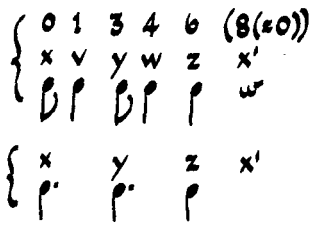 0 1 3 4 6 (8(≡0))
x v y w z x'
x y z x'